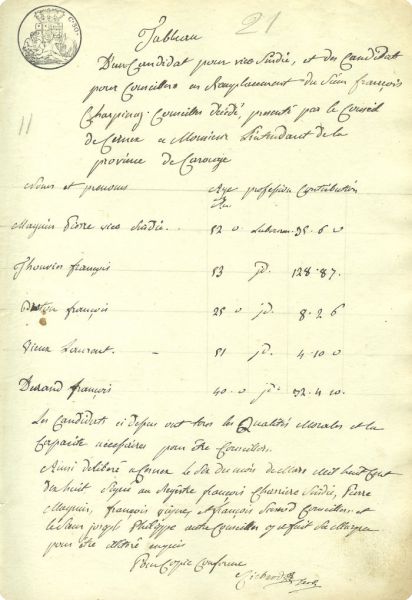 21
Tableau
D'un Candidat pour vice Sindic, et des Candidat
pour Conseillers en Remplacement du Sieur françois
Charpine Conseiller Décédé, presenté par le Conseil
de Cernex a Monsieur L'intendant de la
province de Carouge
11
Noms et prenoms Age profession Contribution
Magnin Pierre vice Sindic 52 0 Laboureur 35 6 0
Thouvier françois 53 jd. 128 87
françois 25 0 jd. 8 2 6
Vieux Laurant 51 jd. 4 10 0
Durand françois 40 0 jd. 32 4 10
Les Candidats ci Depus ont tous les Qualités Morales et la
Capacité nécéssaires pour être Conseillers
Ainsi deliberé a Cernex le dix du mois de Mars Mil huit Cent
dix huit Signé au Régistre françois Charriere Sindic, Pierre
Magnin, françois vigne, et françois Conseillers et
le Sieur joseph Philippe autre Conseiller
pour être
Pour Copie Conforme